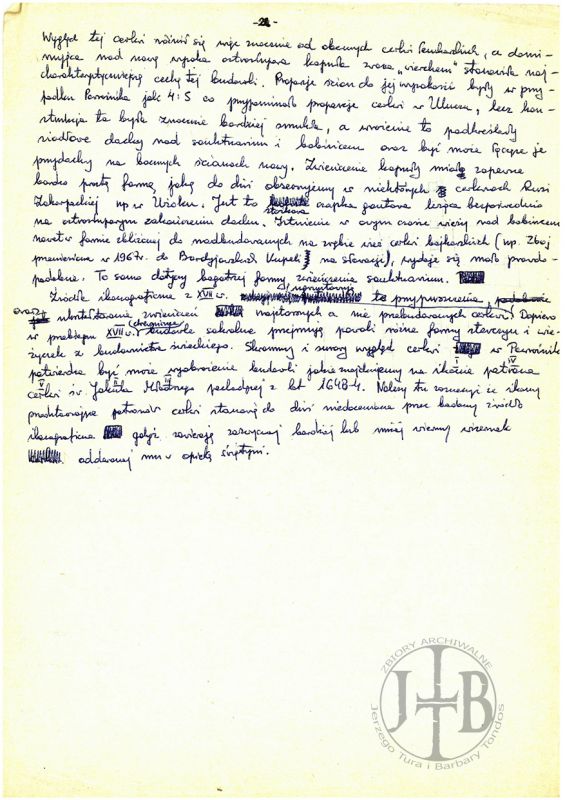 -21-
Wygląd tej cerkwi różnił się więc znacznie od obecnych cerkwi łemkowskich, a domi-
nująca nad nawą wysoka ośmioboczna kopuła zwana „wierchem" stanowiła naj-
charakterystyczniejszą cechę tej budowli. Proporcje ścian do jej wysokości były w przy-
padku Poworoźnika jak 4:5 co przypominało proporcje cerkwi w Uluczu, lecz kon-
strukcja ta była znacznie bardziej smukła, a wrażenie to podkreślały
siodłowe dachy nad sanktuarium i babińcem oraz być może łączące je
przydachy na bocznych ścianach nawy. Zwieńczenie kopuły miało zapewne
bardzo prostą formę, jaką do dziś obserwujemy w niektórych cerkwiach Rusi
Zakarpackiej np. w Użoku. Jest to czapka gontowa leżąca bezpośrednio
stożkowa
na ośmiobocznym zakończeniu dachu. Istnienie w owym czasie wieży nad babińcem
nawet w formie zbliżonej do nadbudowanych na zrębie wież cerkwi bojkowskich (np. Zboj
przeniesiona w 1967r. do Bardyjowskich Kupeli na Słowacji), wydaje się mało prawdo-
podobne. To samo dotyczy bogatszej formy zwieńczenia sanktuarium.
Źródła ikonograficzne z XVII w. to przypuszczenie,
oraz ukształtowanie zwieńczeń najstarszych a nie przebudowanych cerkwi. Dopiero
w przebiegu XVII w. budowle sakralne przejmują powoli różne formy starszych i wie-
życzek z budownictwa świeckiego. Skromny i surowy wygląd cerkwi w Poworoźniku
potwierdza być może wyobrażenie budowli jakie znajdujemy na ikonie patrona
cerkwi św. Jakuba Młodszego pochodzącej z lat 1643-4. Należy tu zaznaczyć że ikony
przedstawiające patronów cerkwi stanowią do dziś niedocenione przez badaczy źródło
ikonograficzne gdyż zawierają zazwyczaj bardziej lub mniej wierny wizerunek
oddawanej mu w opiekę świątyni.
ZBIORY ARCHIWALNE
JTB
Jerzego Tura i Barbary Tondos